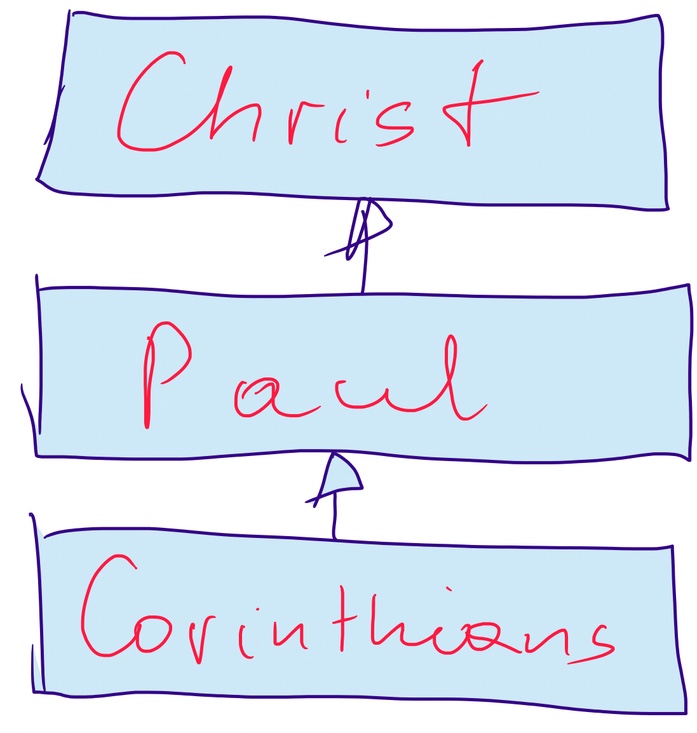 Christ
Paul
Corinthians